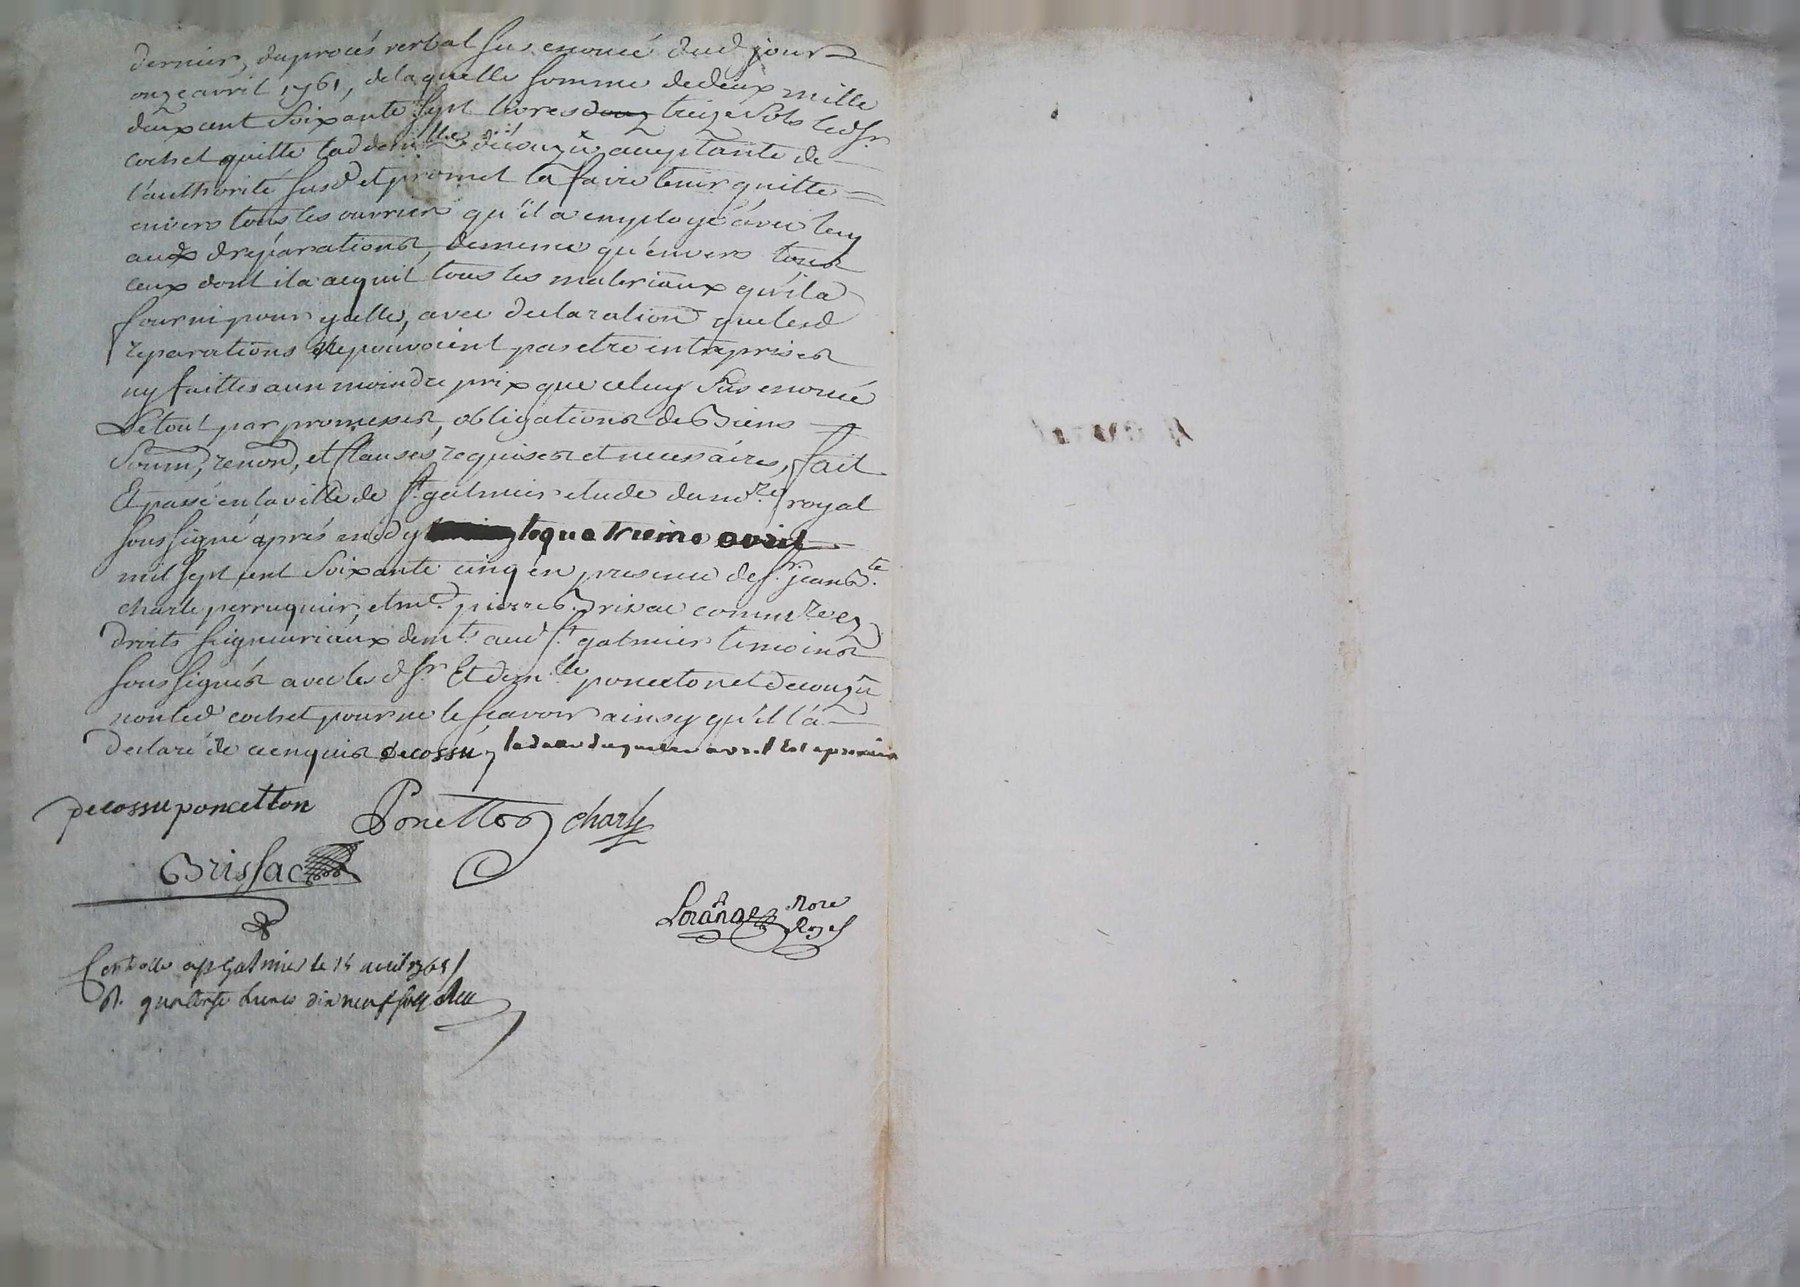 dernier, du procés verbal sus enoncé dud jour
onze avril 1761, de laquelle somme de deux mille
deux cent soixante sept livres treize sols led Sr
cochet quitte lad demlle decouzu acceptante de
l'authorité susd et promet la faire tenir quitte
envers tous les ouvriers qu'il a employé avec luy
aux d reparations, de meme qu'envers tous
ceux dont il a acquit tous les materiaux qu'il a
fourni pour ycelles, avec declaration que lesd
reparations ne pouvoient pas etre entreprises
ny faittes a un moindre prix que celuy sus enoncé
Le tout par promesses, obligations de Biens
Soum, renon, et Clauses requises et necessaires, fait
Et passé en la ville de St galmier etude du nre royal
soussigné après midy le quatrieme avril
mil sept cent soixante cinq en presence de sr jean Bte
charle perruquier, et me pierre Brissac commre en
droits seigneuriaux demts aud St galmier temoins
soussignés avec lesd Sr Et demlle poncetton et decouzu
non led cochet pour ne le sçavoir ainsy qu'il l'a
declaré de ce enquis decossu, la datte du quatre avril Est aprouvée
decossu poncetton Poncetton charle
Brissac
Lorange Nore
Royal
Controllé a St Galmier le 14 avril 1765
R. quatorze livres dix neuf sols